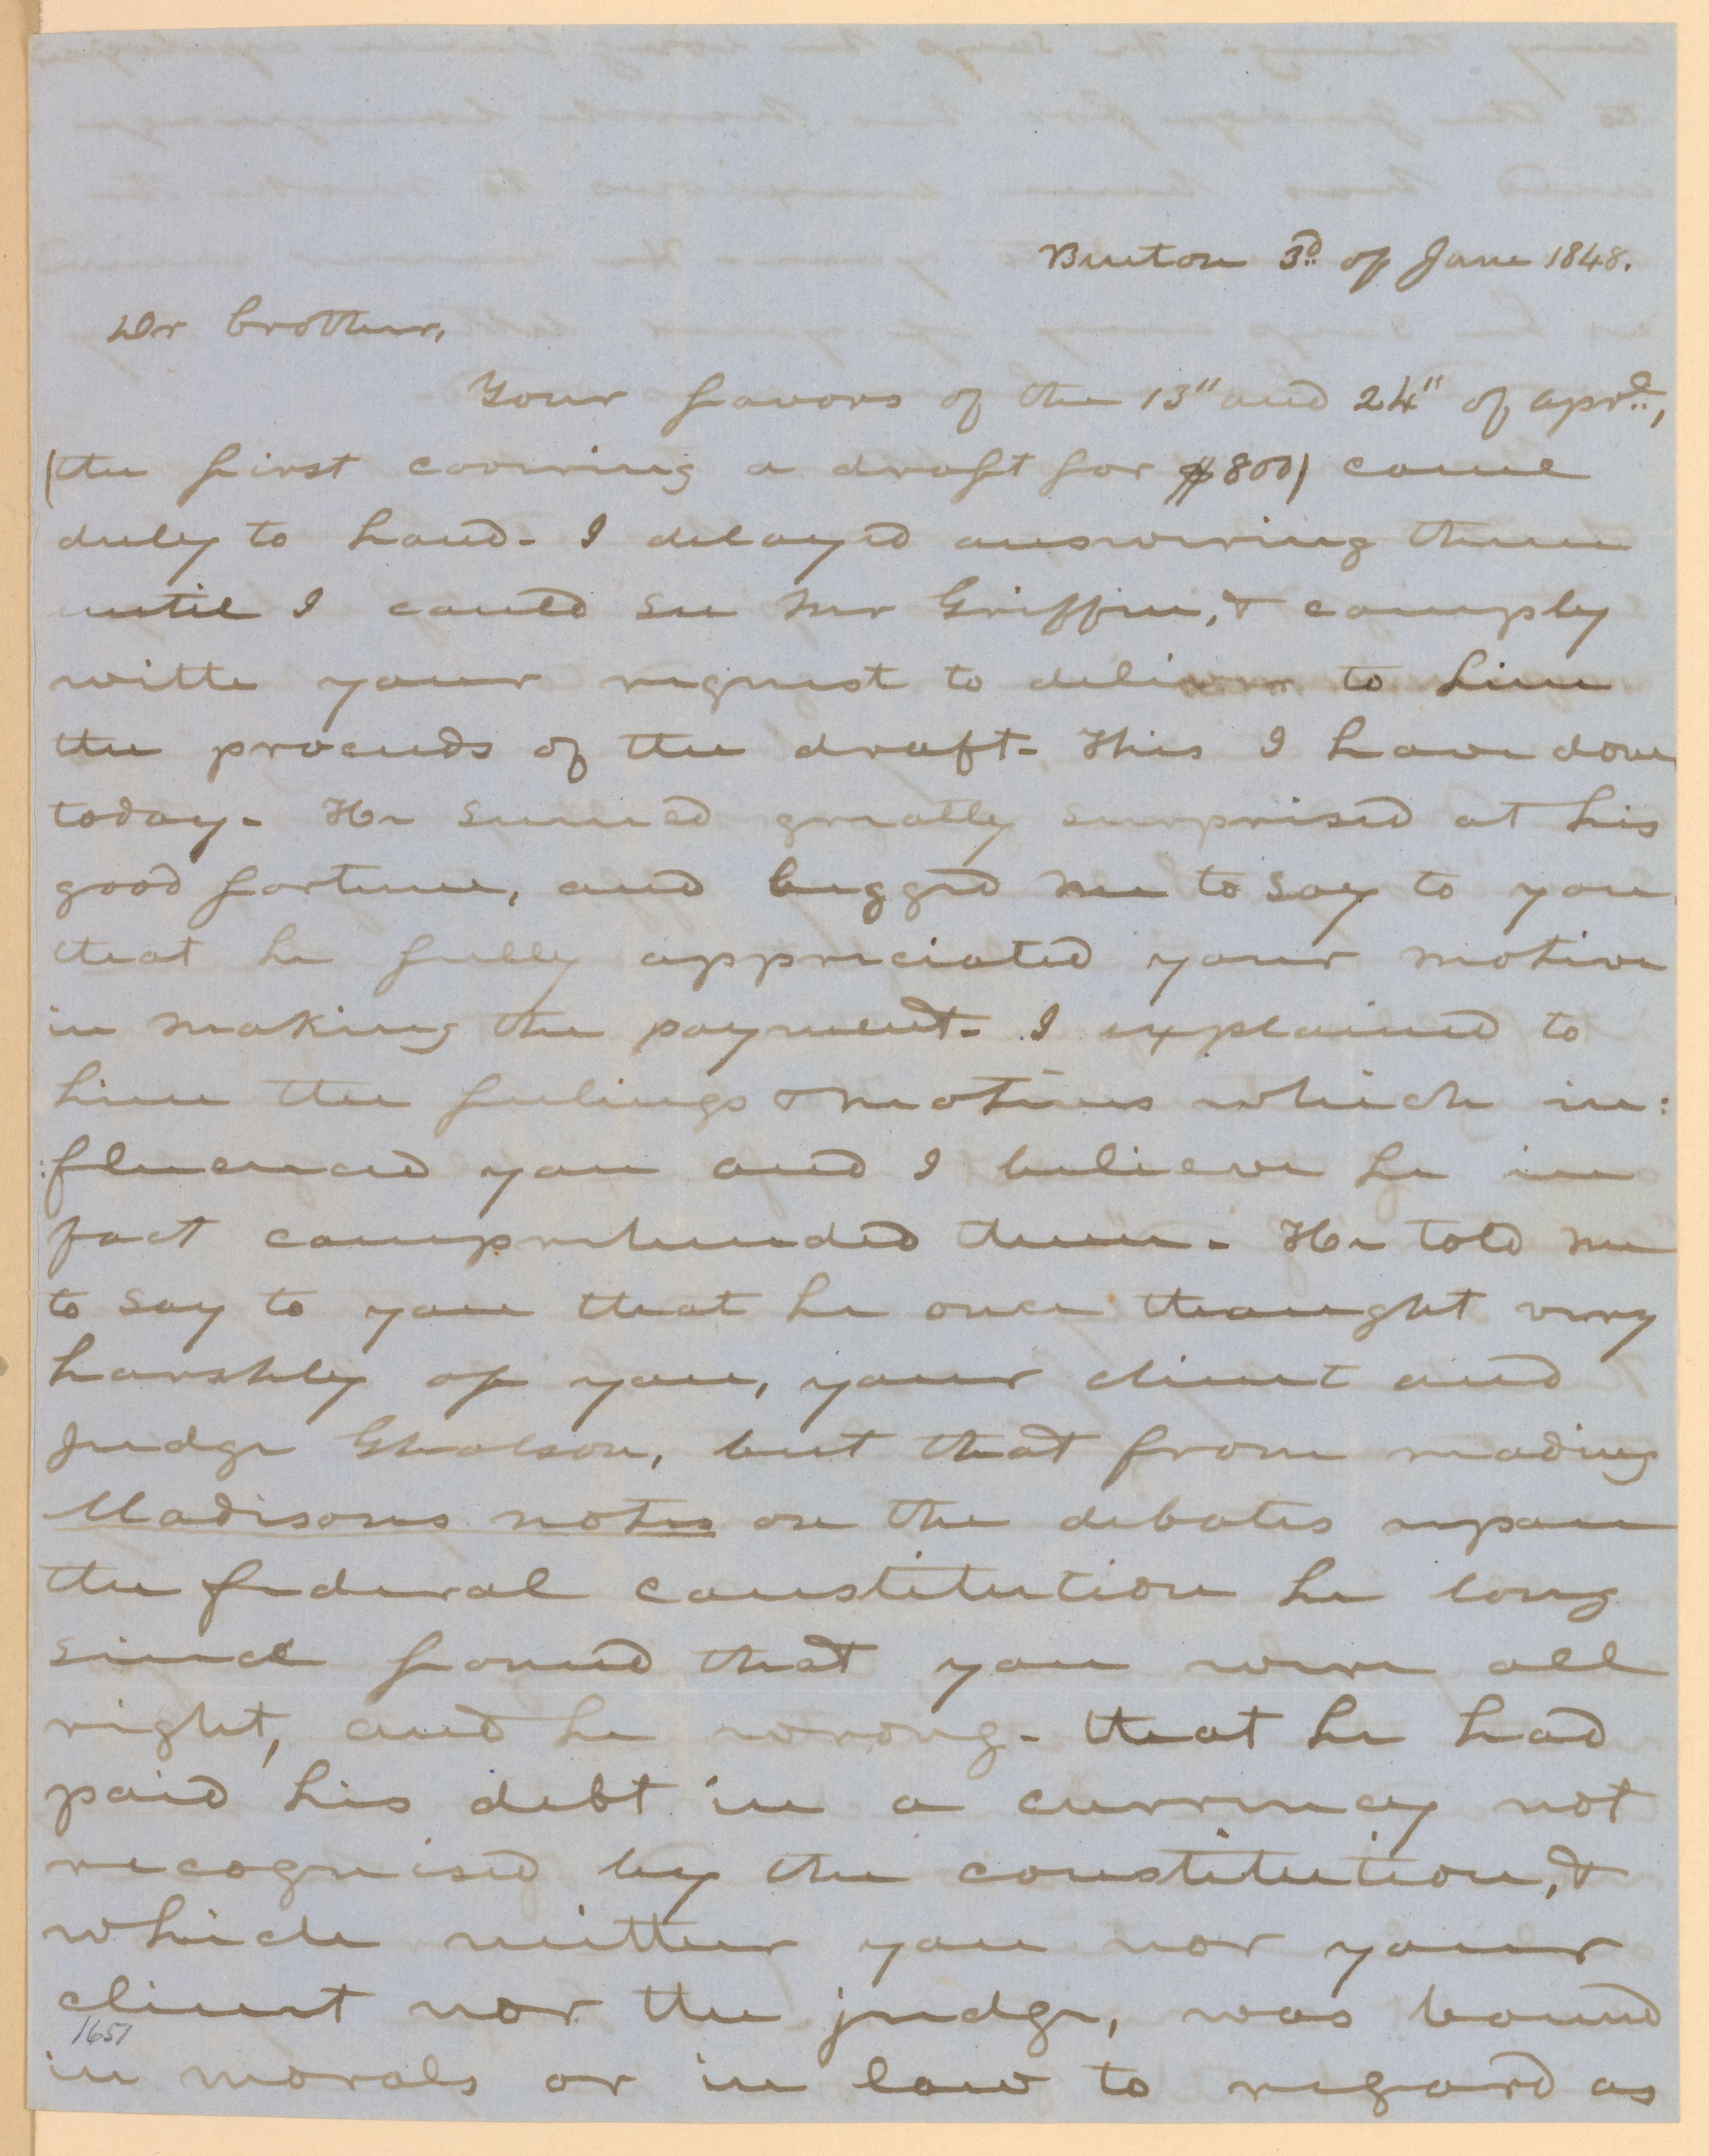 Benton 3d. of June 1848.
Dr brother,
Your favors of the 13" and 24" of aprl.,
(the first covering a draft for $800) came
duly to hand- I delayed answering them
until I could see Mr Griffin, & comply
with your request to deliver to him
the proceeds of the draft- This I have done
today- He seemed greatly surprised at his
good fortune, and begged me to say to you
that he fully appreciated your motive
in making the payment- I explained to
him the feelings & motives which in:
:fluenced you and I believe he in
fact comprehended them- He told me
to say to you that he once thought very
harshly of you, your client and
Judge Gholson, but that from reading
Madisons notes on the debates upon
the federal constitution he long
since found that you were all
right, and he wrong- that he had
paid his debt in a currency not
recognised by the constitution, &
which neither you nor your
client nor the judge, was bound
1651
in morals or in law to regard as